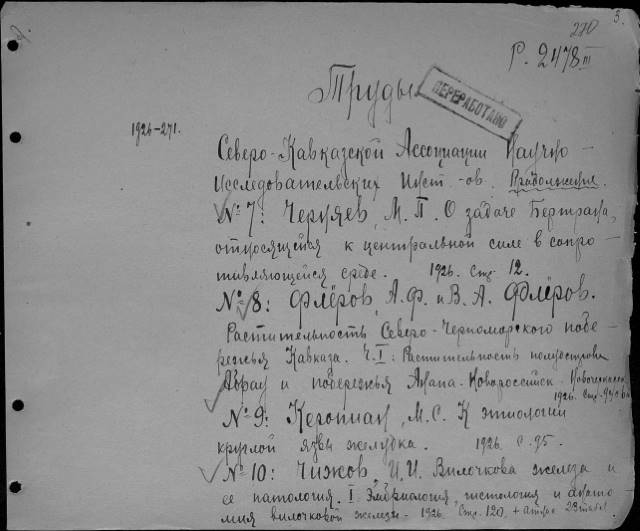 3.
270
Р. 2478 III
Труды
ПЕРЕРАБОТАНО
1926-271.
Северо-Кавказской Ассоциации Научно-
Исследовательских Инст-ов. Продолжение.
№ 7: Черняев, М. П. О задаче Бертрана,
относящейся к центральной силе в сопро-
тивляющейся среде. 1926. Стр. 12.
№ 8: Флёров, А. Ф. и В. А. Флёров.
Растительность Северо-Черноморского побе-
режья Кавказа. Ч. I: Растительность полуострова
Абрау и побережья Анапа-Новороссийск.
1926. Стр.
№ 9: М. С. К этиологии
круглой язвы желудка. 1926. С. 95.
№ 10: Чижов, И. И. Вилочкова железа и
ее патология. I Эмбриология, гистология и анато-
мия вилочковой железы. 1926. Стр. 120. +